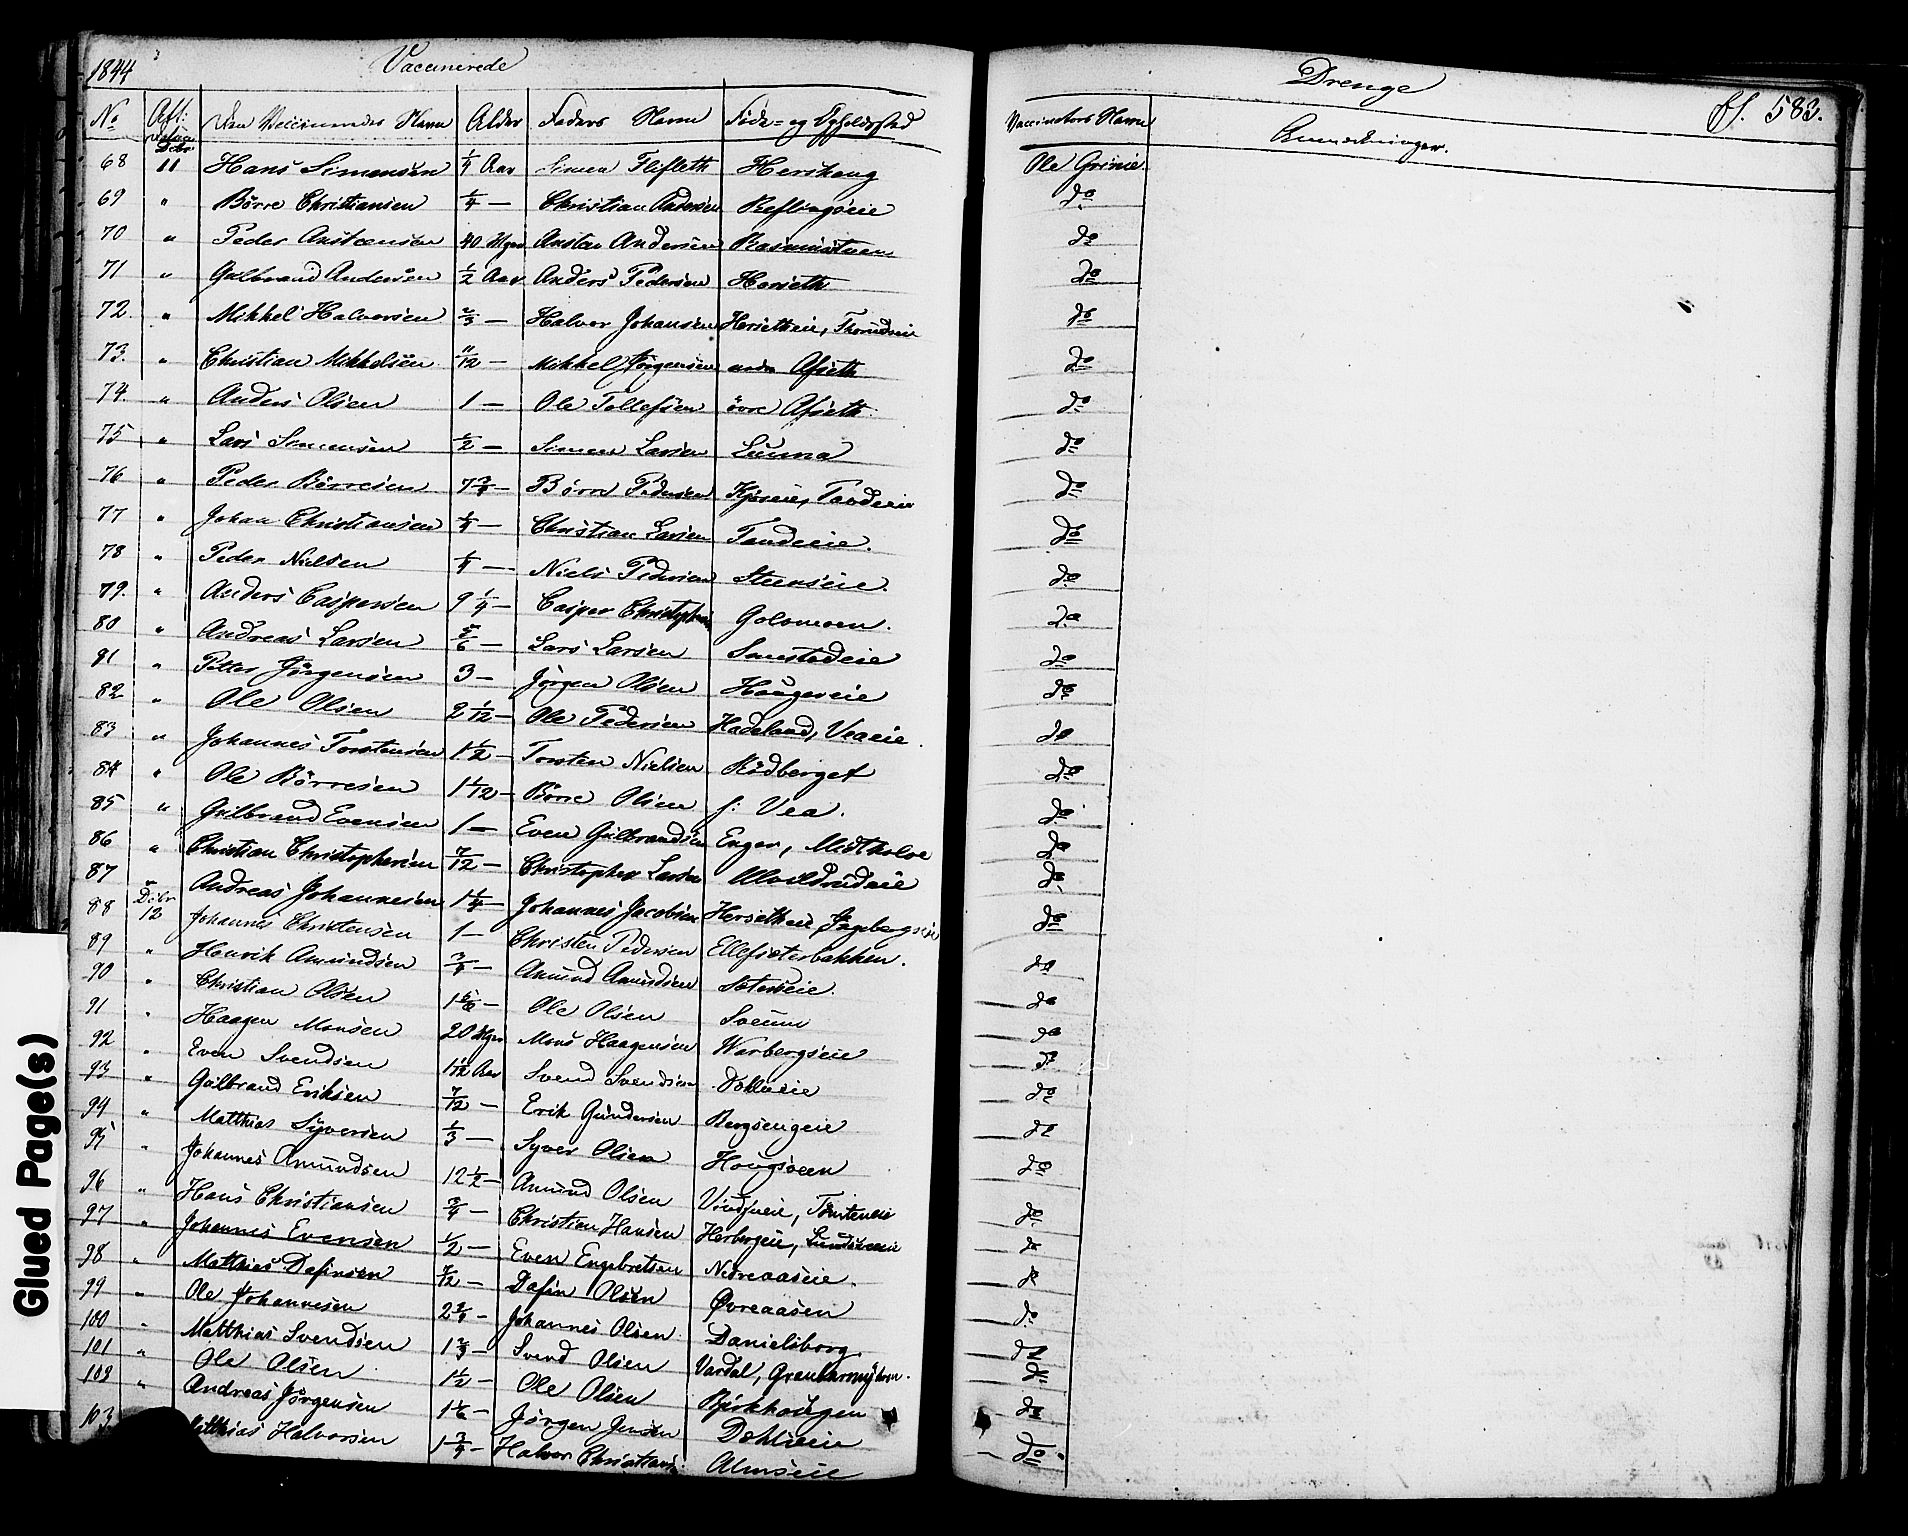 1844 Vaccinerede
Drenge
fl. 583.
No Aft: Den Vaccineredes Navn Alder Faders Navn Føde- og Opholdssted Vaccinators Navn Anmærkninger.
68 Debr 11 Hans Simensen 1/4 Aar Simen Flifleth Hershoug Ole Grinie
69 " Børre Christiansen 1/4 — Christian Andersen Reflingseie do
70 " Peder Anstensen 40 Uger Ansten Andersen Rasmusstuen do
71 " Gulbrand Andersen 1/2 Aar Anders Pedersen Herseth do
72. " Mikkel Halvorsen 2/3 — Halvor Johansen Hersetheie, Thorudseie do
73. " Christian Mikkelsen 11/12 — Mikkel Jørgensen nedre Afseth do
74. " Anders Olsen 1 — Ole Tollefsen övre Afseth do
75 " Lars Simensen 1/2 — Simen Larsen Lunna do
76 " Peder Børresen 7 3/4 — Børre Pedersen Kjöseie, Tandeeie do
77 " Johan Christiansen 1/4 — Christian Larsen Tandeeie. do
78 " Peder Nielsen 1/4 — Niels Pedersen Steenseie. do
79. " Anders Caspersen 9 1/4 — Casper Christophers Golomoen. do
80 " Andreas Larsen 5/6 — Lars Larsen Smestadeie do
81 " Petter Jørgensen 3 — Jørgen Olsen Haugerseie do
82 " Ole Olsen 2 1/12 — Ole Pedersen Hadeland, Veaeie. do
83 " Johannes Torstensen 1 1/2 — Torsten Nielsen Rödberget do
84 " Ole Børresen 1 1/12 — Børre Olsen s: Vea. do
85 " Gulbrand Evensen 1 — Even Gulbrandsen Enger, Midtholve do
86 " Christian Christophersen 7/12 — Christopher Larsen Alvildrudeie do
87 " Andreas Johannesen 1 1/4 — Johannes Jacobsen Hersetheie, Fogebergseie do
88 Debr 12 Johannes Christensen 1 — Christen Pedersen Ellefsæterbakken. do
89 " Henrik Amundsen 3/4 — Amund Amundsen Sæterseie. do
90 " Christian Olsen 1 5/6 — Ole Olsen Sveum do
91 " Haagen Monsen 20 Uger Mons Haagensen Warbergseie do
92 " Even Svendsen 1 1/12 Aar Svend Svendsen Dohleeie do
93 " Gulbrand Eriksen 7/12 — Erik Gundersen Bergsengeie do
94 " Matthias Syversen 1/3 — Syver Olsen Hougsveen do
95 " Johannes Amundsen 12 1/2 — Amund Olsen Vindjueie, Tømteneie do
96 " Hans Christiansen 3/4 — Christian Hansen Herbergeie, Lundstueeie do
97 " Johannes Evensen 1/2 — Even Engebretsen Nedreaaseie. do
98 " Matthias Dafinsen 7/12 — Dafin Olsen Øvreaasen do
99 " Ole Johannesen 2 3/4 — Johannes Olsen Danielsborg. do
100 " Matthias Svendsen 1 2/3 — Svend Olsen Vardal, do
101 " Ole Olsen 1 1/2 — Ole Olsen Bjørkhougen do
102 " Andreas Jørgensen 1 1/6 — Jørgen Jensen Dohleeie do
103 Matthias Halvorsen 1 3/4 — Halvor Christians. Almseie do
Glued Page(s)